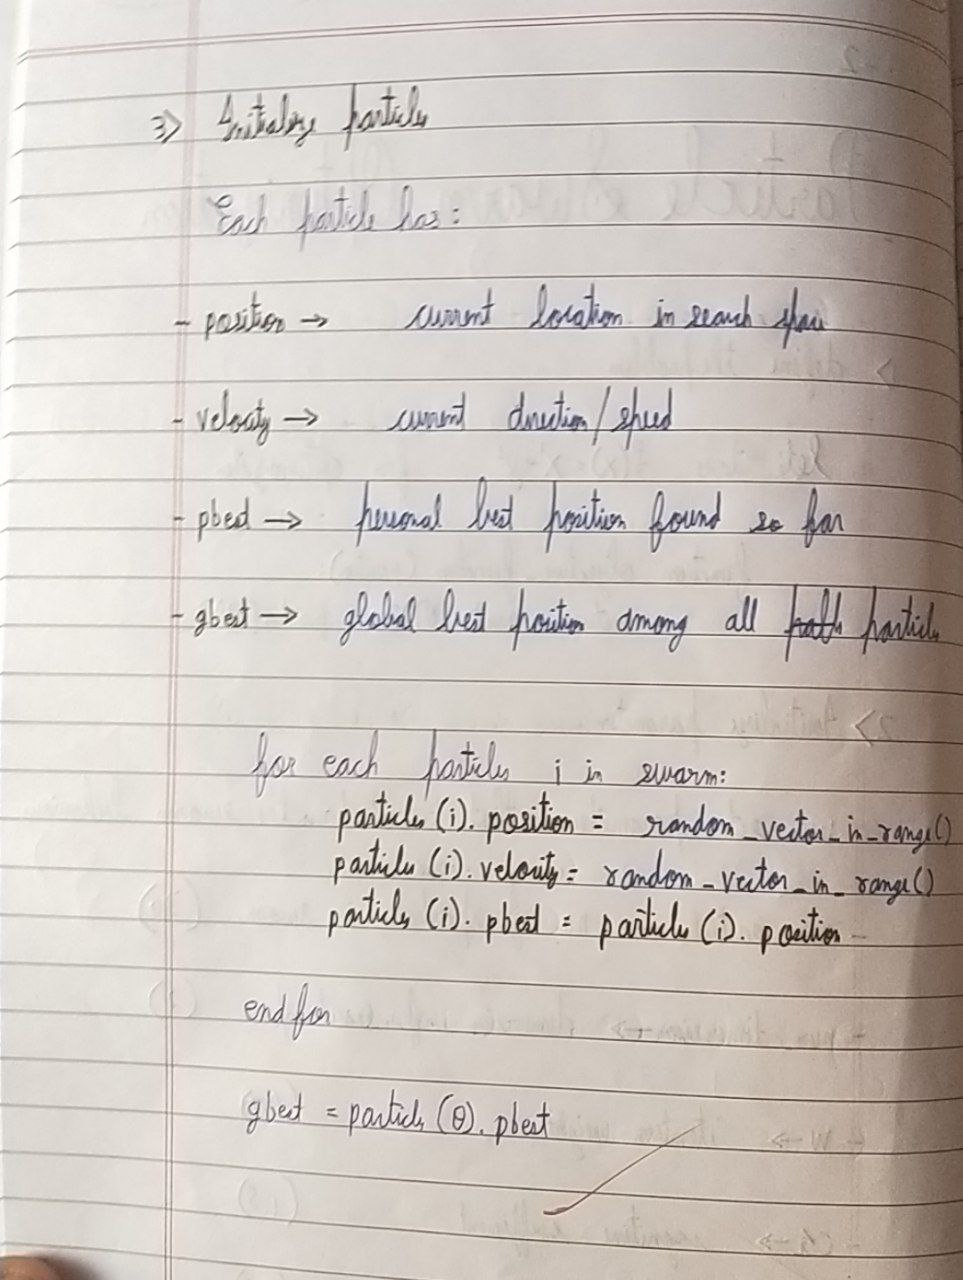 3) Initialize particles
Each particle has:
- position → current location in search space
- velocity → current direction/speed
- pbest → personal best position found so far
- gbest → global best position among all particles
for each particles i in swarm:
particles (i). position = random_vector_in_range()
particles (i). velocity = random_vector_in_range()
particles (i). pbest = particles (i). position
end for
gbest = particles (0). pbest